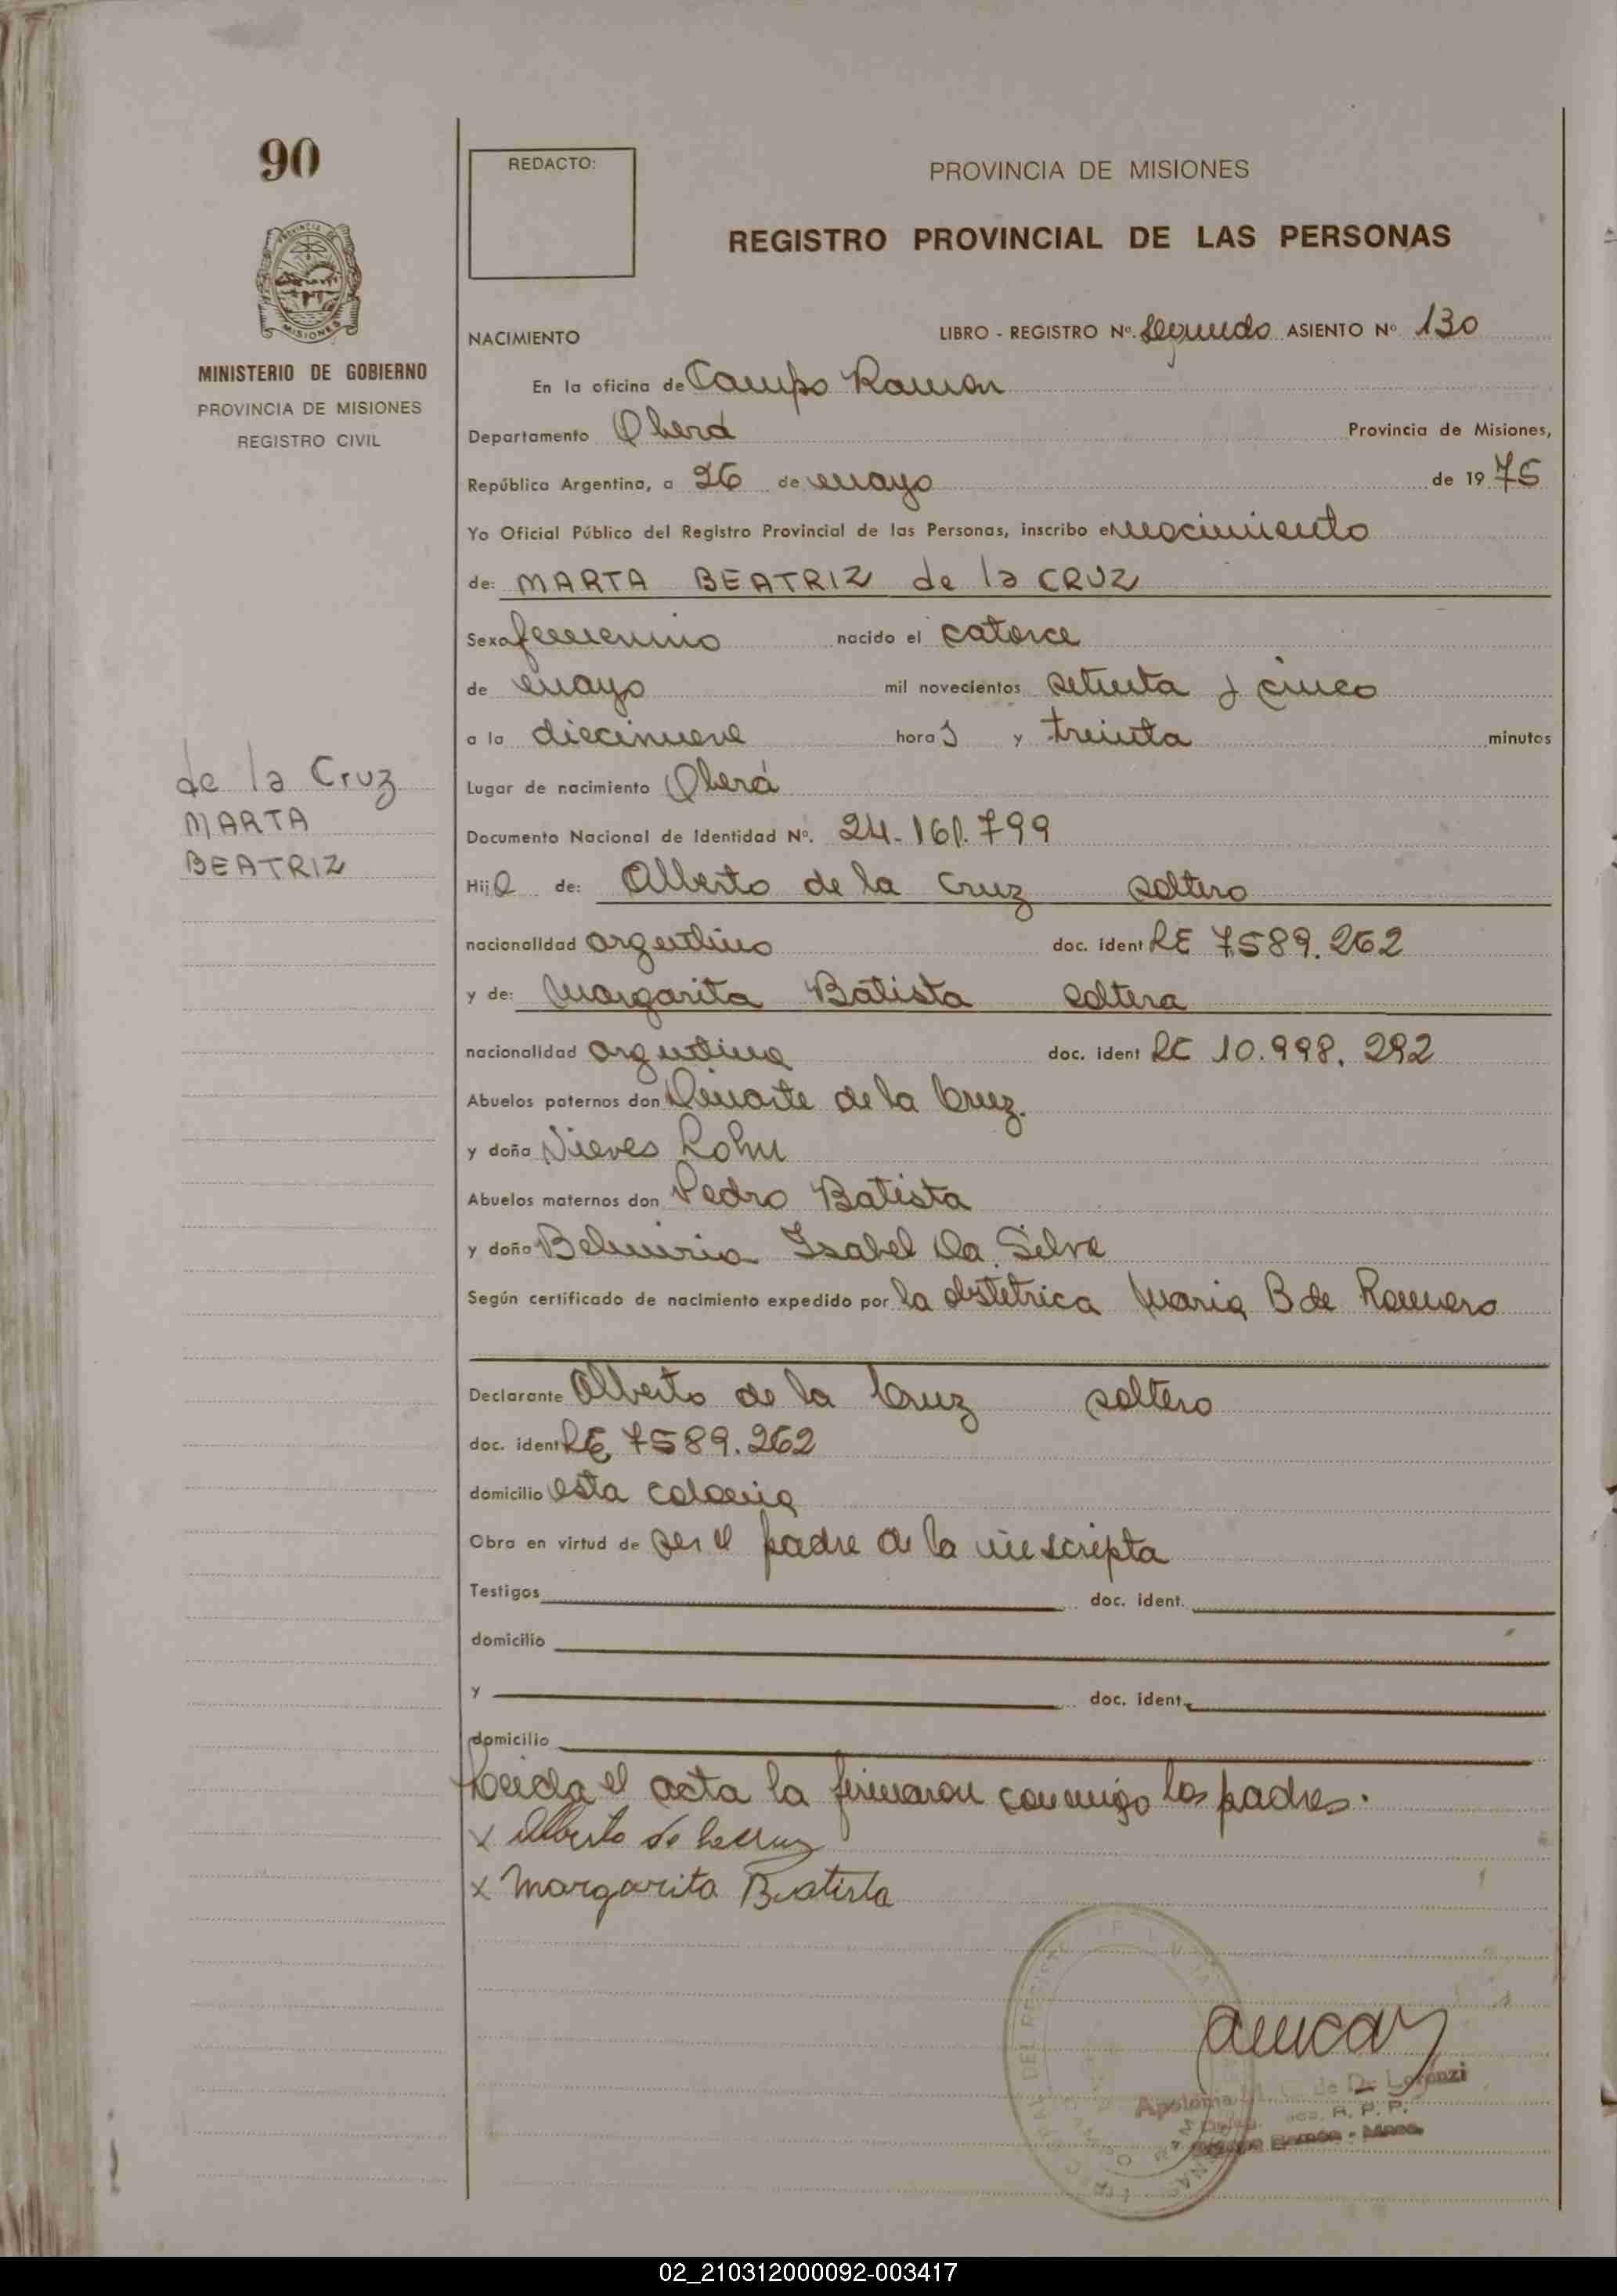 90
REDACTO:
PROVINCIA DE MISIONES
REGISTRO PROVINCIAL DE LAS PERSONAS
MISIONES
MINISTERIO DE GOBIERNO
PROVINCIA DE MISIONES
REGISTRO CIVIL
NACIMIENTO LIBRO - REGISTRO Nº. Segundo ASIENTO Nº 130
En la oficina de Campo Ramon
Departamento Oberá Provincia de Misiones,
República Argentina, a 26 de mayo de 1975
Yo Oficial Público del Registro Provincial de las Personas, inscribo el nacimiento
de: MARTA BEATRIZ de la CRUZ
Sexo femenino nacido el catorce
de mayo mil novecientos setenta y cinco
a la diecinueve horas y treinta minutos
de la Cruz
MARTA
BEATRIZ
Lugar de nacimiento Oberá
Documento Nacional de Identidad Nº. 24.161.799
Hija de: Alberto de la Cruz soltero
nacionalidad argentino doc. ident LE 7.589.262
y de: Margarita Batista soltera
nacionalidad argentina doc. ident LC 10.998.292
Abuelos paternos don de la Cruz.
y doña Nieves
Abuelos maternos don Pedro Batista
y doña Belmiria Isabel Da Silva
Según certificado de nacimiento expedido por la obstetrica Maria B de Romero
Declarante Alberto de la Cruz soltero
doc. ident LE 7589.262
domicilio esta colonia
Obra en virtud de ser el padre de la inscripta
Testigos doc. ident.
domicilio
y doc. ident.
domicilio
Leida el acta la firmaron conmigo los padres.
x Alberto de la Cruz
x Margarita Batista
de De Lorenzi
R. P. P.
Ramón - Mnes.
02_210312000092-003417